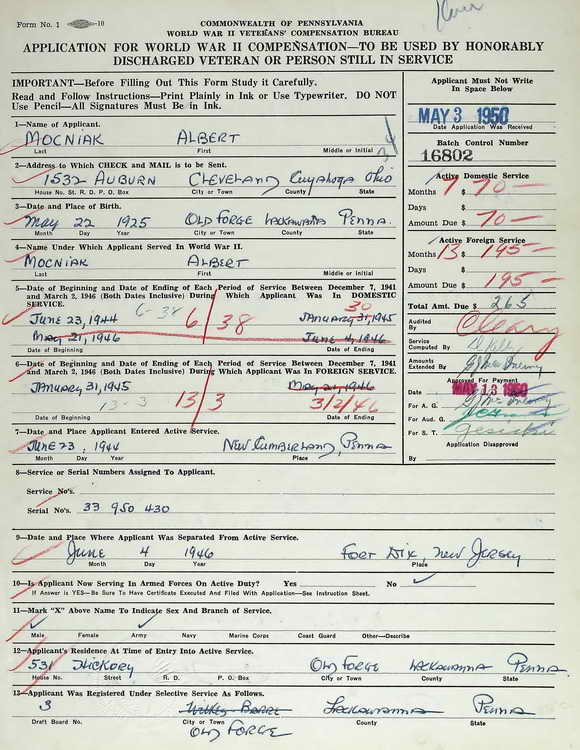 Form No. 1 -10
COMMONWEALTH OF PENNSYLVANIA
WORLD WAR II VETERANS' COMPENSATION BUREAU
APPLICATION FOR WORLD WAR II COMPENSATION—TO BE USED BY HONORABLY
DISCHARGED VETERAN OR PERSON STILL IN SERVICE
IMPORTANT—Before Filling Out This Form Study it Carefully.
Read and Follow Instructions—Print Plainly in Ink or Use Typewriter. DO NOT
Use Pencil—All Signatures Must Be in Ink.
Applicant Must Not Write
In Space Below
MAY 3 1950
Date Application Was Received
Batch Control Number
16802
1—Name of Applicant.
MOCNIAK ALBERT
Last First Middle or Initial
2—Address to Which CHECK and MAIL is to be Sent.
1532 AUBURN CLEVELAND Cuyahoga Ohio
House No. St. R. D. P. O. Box City or Town County State
3—Date and Place of Birth.
May 22 1925 OLD FORGE LACKAWANNA PENNA.
Month Day Year City or Town County State
4—Name Under Which Applicant Served In World War II.
MOCNIAK ALBERT
Last First Middle or Initial
Active Domestic Service
Months 7 $ 70—
Days $
Amount Due $ 70—
Active Foreign Service
Months 13 $ 195—
Days $
Amount Due $ 195—
Total Amt. Due $ 265
5—Date of Beginning and Date of Ending of Each Period of Service Between December 7, 1941
and March 2, 1946 (Both Dates Inclusive) During Which Applicant Was In DOMESTIC
SERVICE.
6-38 30
JUNE 23, 1944 6/38 JANUARY 31, 1945
May 21, 1946 JUNE 4, 1946
Date of Beginning Date of Ending
6—Date of Beginning and Date of Ending of Each Period of Service Between December 7, 1941
and March 2, 1946 (Both Dates Inclusive) During Which Applicant Was In FOREIGN SERVICE.
JANUARY 31, 1945 May 21, 1946
13-3 13/3 3/2/46
Date of Beginning Date of Ending
Audited By Cleary
Service Computed By
Amounts Extended By
Approved For Payment
Date MAY 13 1950
For A. G.
For Aud. G.
For S. T.
Application Disapproved
By
7—Date and Place Applicant Entered Active Service.
JUNE 23, 1944 NEW CUMBERLAND, PENNA
Month Day Year Place
8—Service or Serial Numbers Assigned To Applicant.
Service No's.
Serial No's. 33 950 430
9—Date and Place Where Applicant Was Separated From Active Service.
JUNE 4 1946 FORT DIX, NEW JERSEY
Month Day Year Place
10—Is Applicant Now Serving In Armed Forces On Active Duty? Yes No ✓
If Answer is YES—Be Sure To Have Certificate Executed And Filed With Application—See Instruction Sheet.
11—Mark "X" Above Name To Indicate Sex And Branch of Service.
✓ ✓
Male Female Army Navy Marine Corps Coast Guard Other—Describe
12—Applicant's Residence At Time of Entry Into Active Service.
531 HICKORY OLD FORGE LACKAWANNA PENNA
House No. Street R. D. P. O. Box City or Town County State
13—Applicant Was Registered Under Selective Service As Follows.
3 WILKES BARRE LACKAWANNA PENNA
Draft Board No. City or Town County State
OLD FORGE